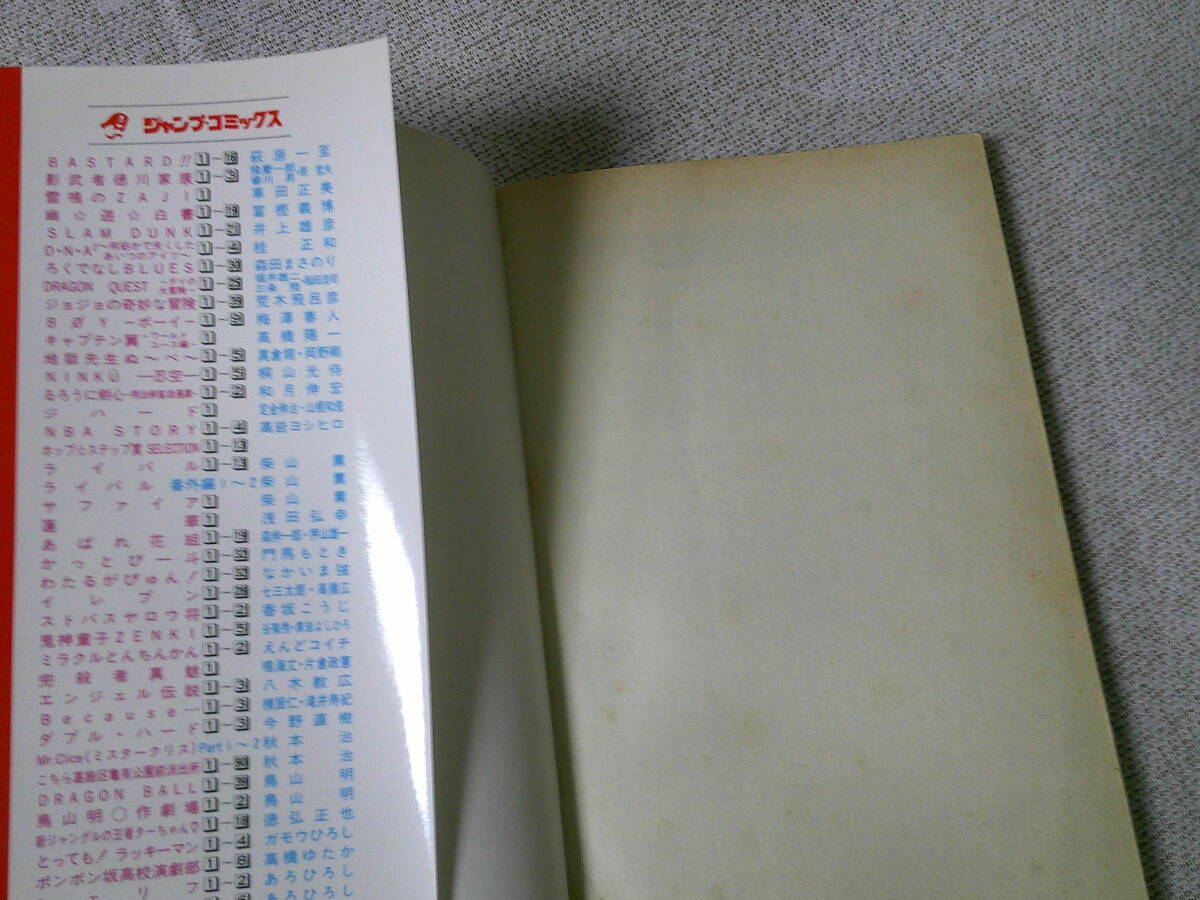 ジャンプ・コミックス
BASTARD!! 1〜16 萩原一至
影武者徳川家康 1〜3
雷鳴のZAJI 1 車田正美
幽☆遊☆白書 1〜19 冨樫義博
SLAM DUNK 1〜21 井上雄彦
D・N・A² 〜何処かで失くしたあいつのアイツ〜 1〜4 桂正和
ろくでなしBLUES 1〜30 森田まさのり
DRAGON QUEST −ダイの大冒険− 1〜25 堀井雄二 三条陸・稲田浩司
ジョジョの奇妙な冒険 1〜39 荒木飛呂彦
BØY −ボーイ− 1〜9 梅澤春人
キャプテン翼 −ワールドユース編− 1 高橋陽一
地獄先生ぬ〜べ〜 1〜5 真倉翔・岡野剛
NINKŪ —忍空— 1〜5 桐山光侍
るろうに剣心 1〜2 和月伸宏
ジハード 1 定金伸治・山根和俊
NBA STORY 1〜4 高岩ヨシヒロ
ホップ☆ステップ賞 SELECTION 1〜13
ライバル 1〜13 柴山薫
ライバル 番外編1〜2 柴山薫
サファイア 1 柴山薫
蓮華 1 浅田弘幸
あばれ花組 1〜19
かっとび一斗 1〜32 門馬もとき
わたるがぴゅん! 1〜32 なかいま強
イレブン 1〜28 七三太朗・高橋広
ストバスヤロウ将 1〜2 香坂こうじ
鬼神童子ZENKI 1〜5 谷菊秀・黒岩よしひろ
ミラクルとんちんかん 1〜2 えんどコイチ
完殺者真魅 1 鳴海丈・片倉政憲
エンジェル伝説 1〜3 八木教広
Because… 1〜3 棟居仁・滝井寿紀
ダブル・ハード 1〜3 今野直樹
Mr.Clice(ミスタークリス) Part1〜2 秋本治
こちら葛飾区亀有公園前派出所 1〜90 秋本治
DRAGON BALL 1〜39 鳥山明
鳥山明○作劇場 1〜2 鳥山明
新ジャングルの王者ターちゃん♡ 1〜18 徳弘正也
とっても!ラッキーマン 1〜4 ガモウひろし
ボンボン坂高校演劇部 1〜6 高橋ゆたか
リフ 1〜2 あろひろし
あろひろし